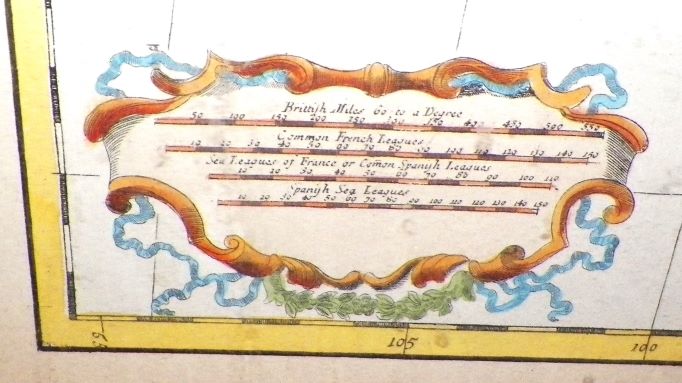 Brittish Miles 60 to a Degree
50 100 150 200 250 300 350 400 450 500 550
Common French Leagues
10 20 30 40 50 60 70 80 90 100 110 120 130 140 150
Sea Leagues of France or Comon Spanish Leagues
10 20 30 40 50 60 70 80 90 100 110
Spanish Sea Leagues
10 20 30 40 50 60 70 80 90 100 110 120 130 140 150
105
100